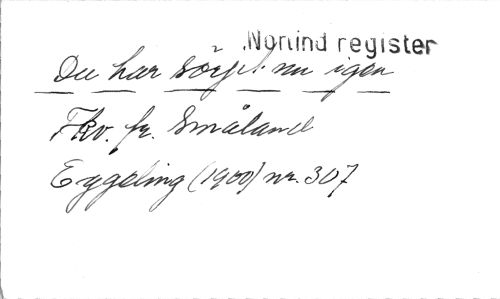 Norlind register
Du har sörjt nu igen
Fkv. fr. Småland
Eggeling (1900) nr. 307